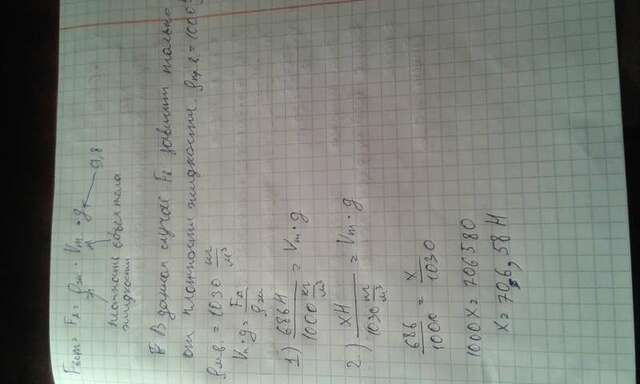 Fвыт = FА = ρж · Vт · g ← 9,8
плотность жидкости объем тела
В данном случае FА зависит только
от плотности жидкости. ρпр.в = 1000
ρмв = 1030 кг/м³
Vт · g = FА/ρж
1) 686Н / 1000 кг/м³ = Vт · g
2) XН / 1030 кг/м³ = Vт · g
686/1000 = X/1030
1000X = 706580
X = 706,58 Н